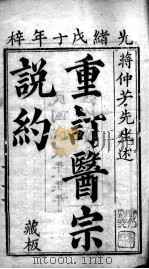 光緒戊子年梓
蔣仲芳先生述
重訂醫宗
說約
藏板